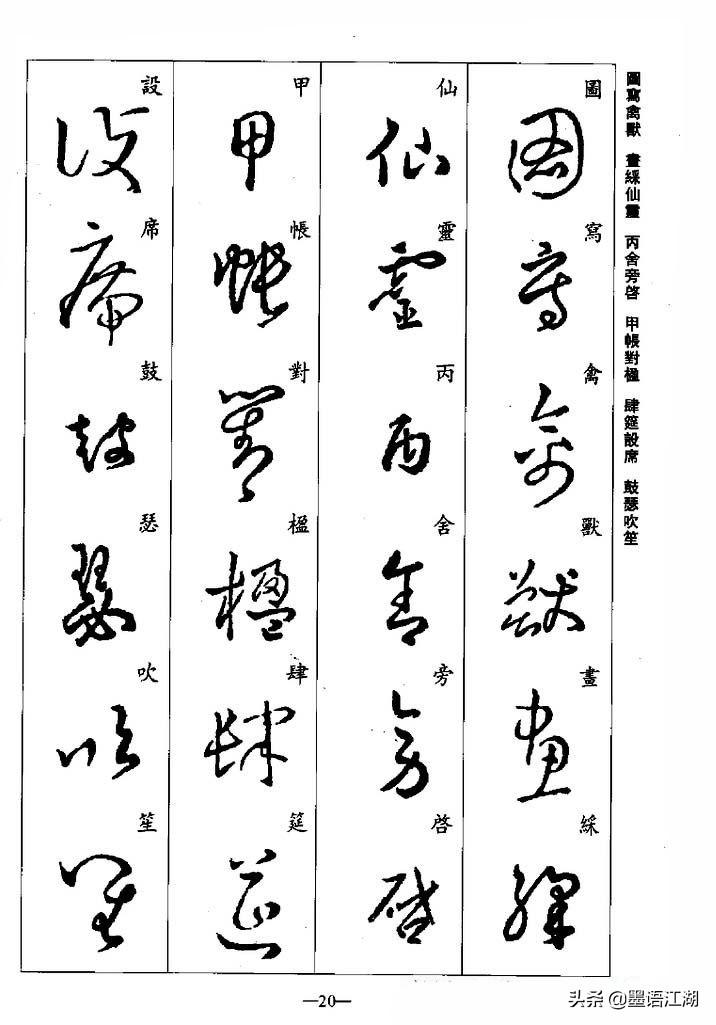 圖寫禽獸　畫綵仙靈　丙舍旁啓　甲帳對楹　肆筵設席　鼓瑟吹笙
圖寫禽獸畫綵
仙靈丙舍旁啓
甲帳對楹肆筵
設席鼓瑟吹笙
—20—
头条 @墨语江湖